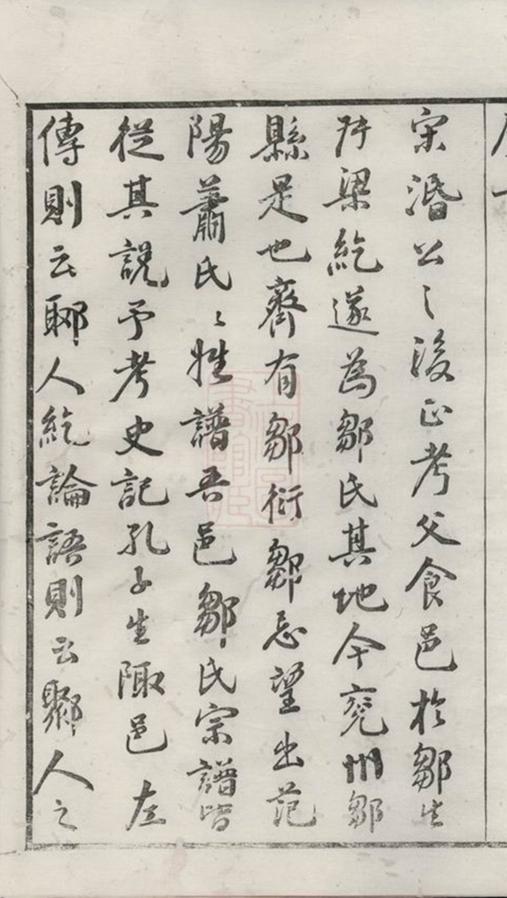 宋湣公之後正考父食邑於鄒生
叔梁紇遂為鄒氏其地今兖州鄒
縣是也齊有鄒衍鄒忌望出范
陽蕭氏氏姓譜吾邑鄒氏宗譜皆
從其說予考史記孔子生陬邑左
傳則云郰人紇論語則云鄹人之